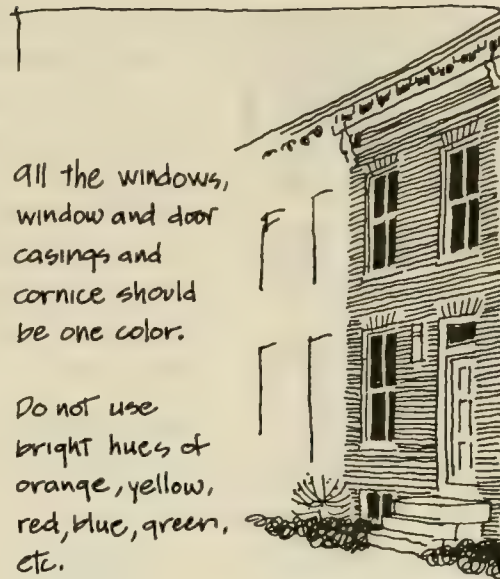 all the windows,
window and door
casings and
cornice should
be one color.
Do not use
bright hues of
orange, yellow,
red, blue, green,
etc.